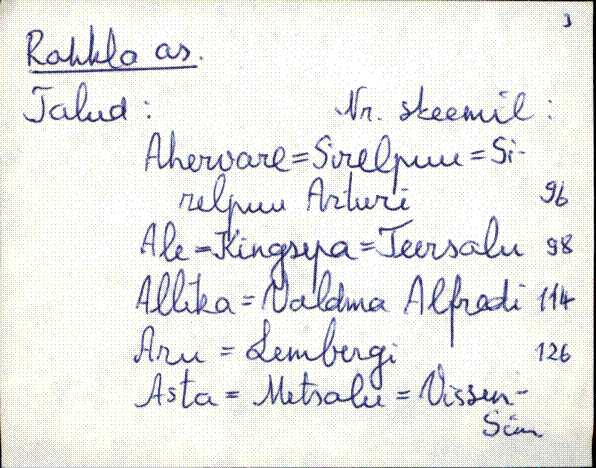 3
Rahkla as.
Talud: Nr. skeemil:
Ahervare=Sirelpuu=Si-
relpuu Arturi 96
Ale=Kingsepa=Teersalu 98
Allika=Valdma Alfredi 114
Aru = Lembergi 126
Asta = Metsalu = Vissen-